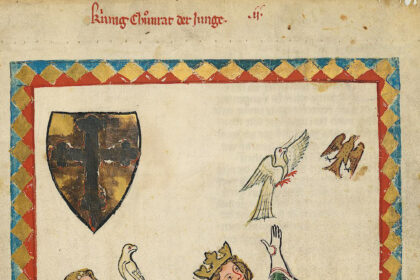 kúnig Chůnrat der Junge. .ij.